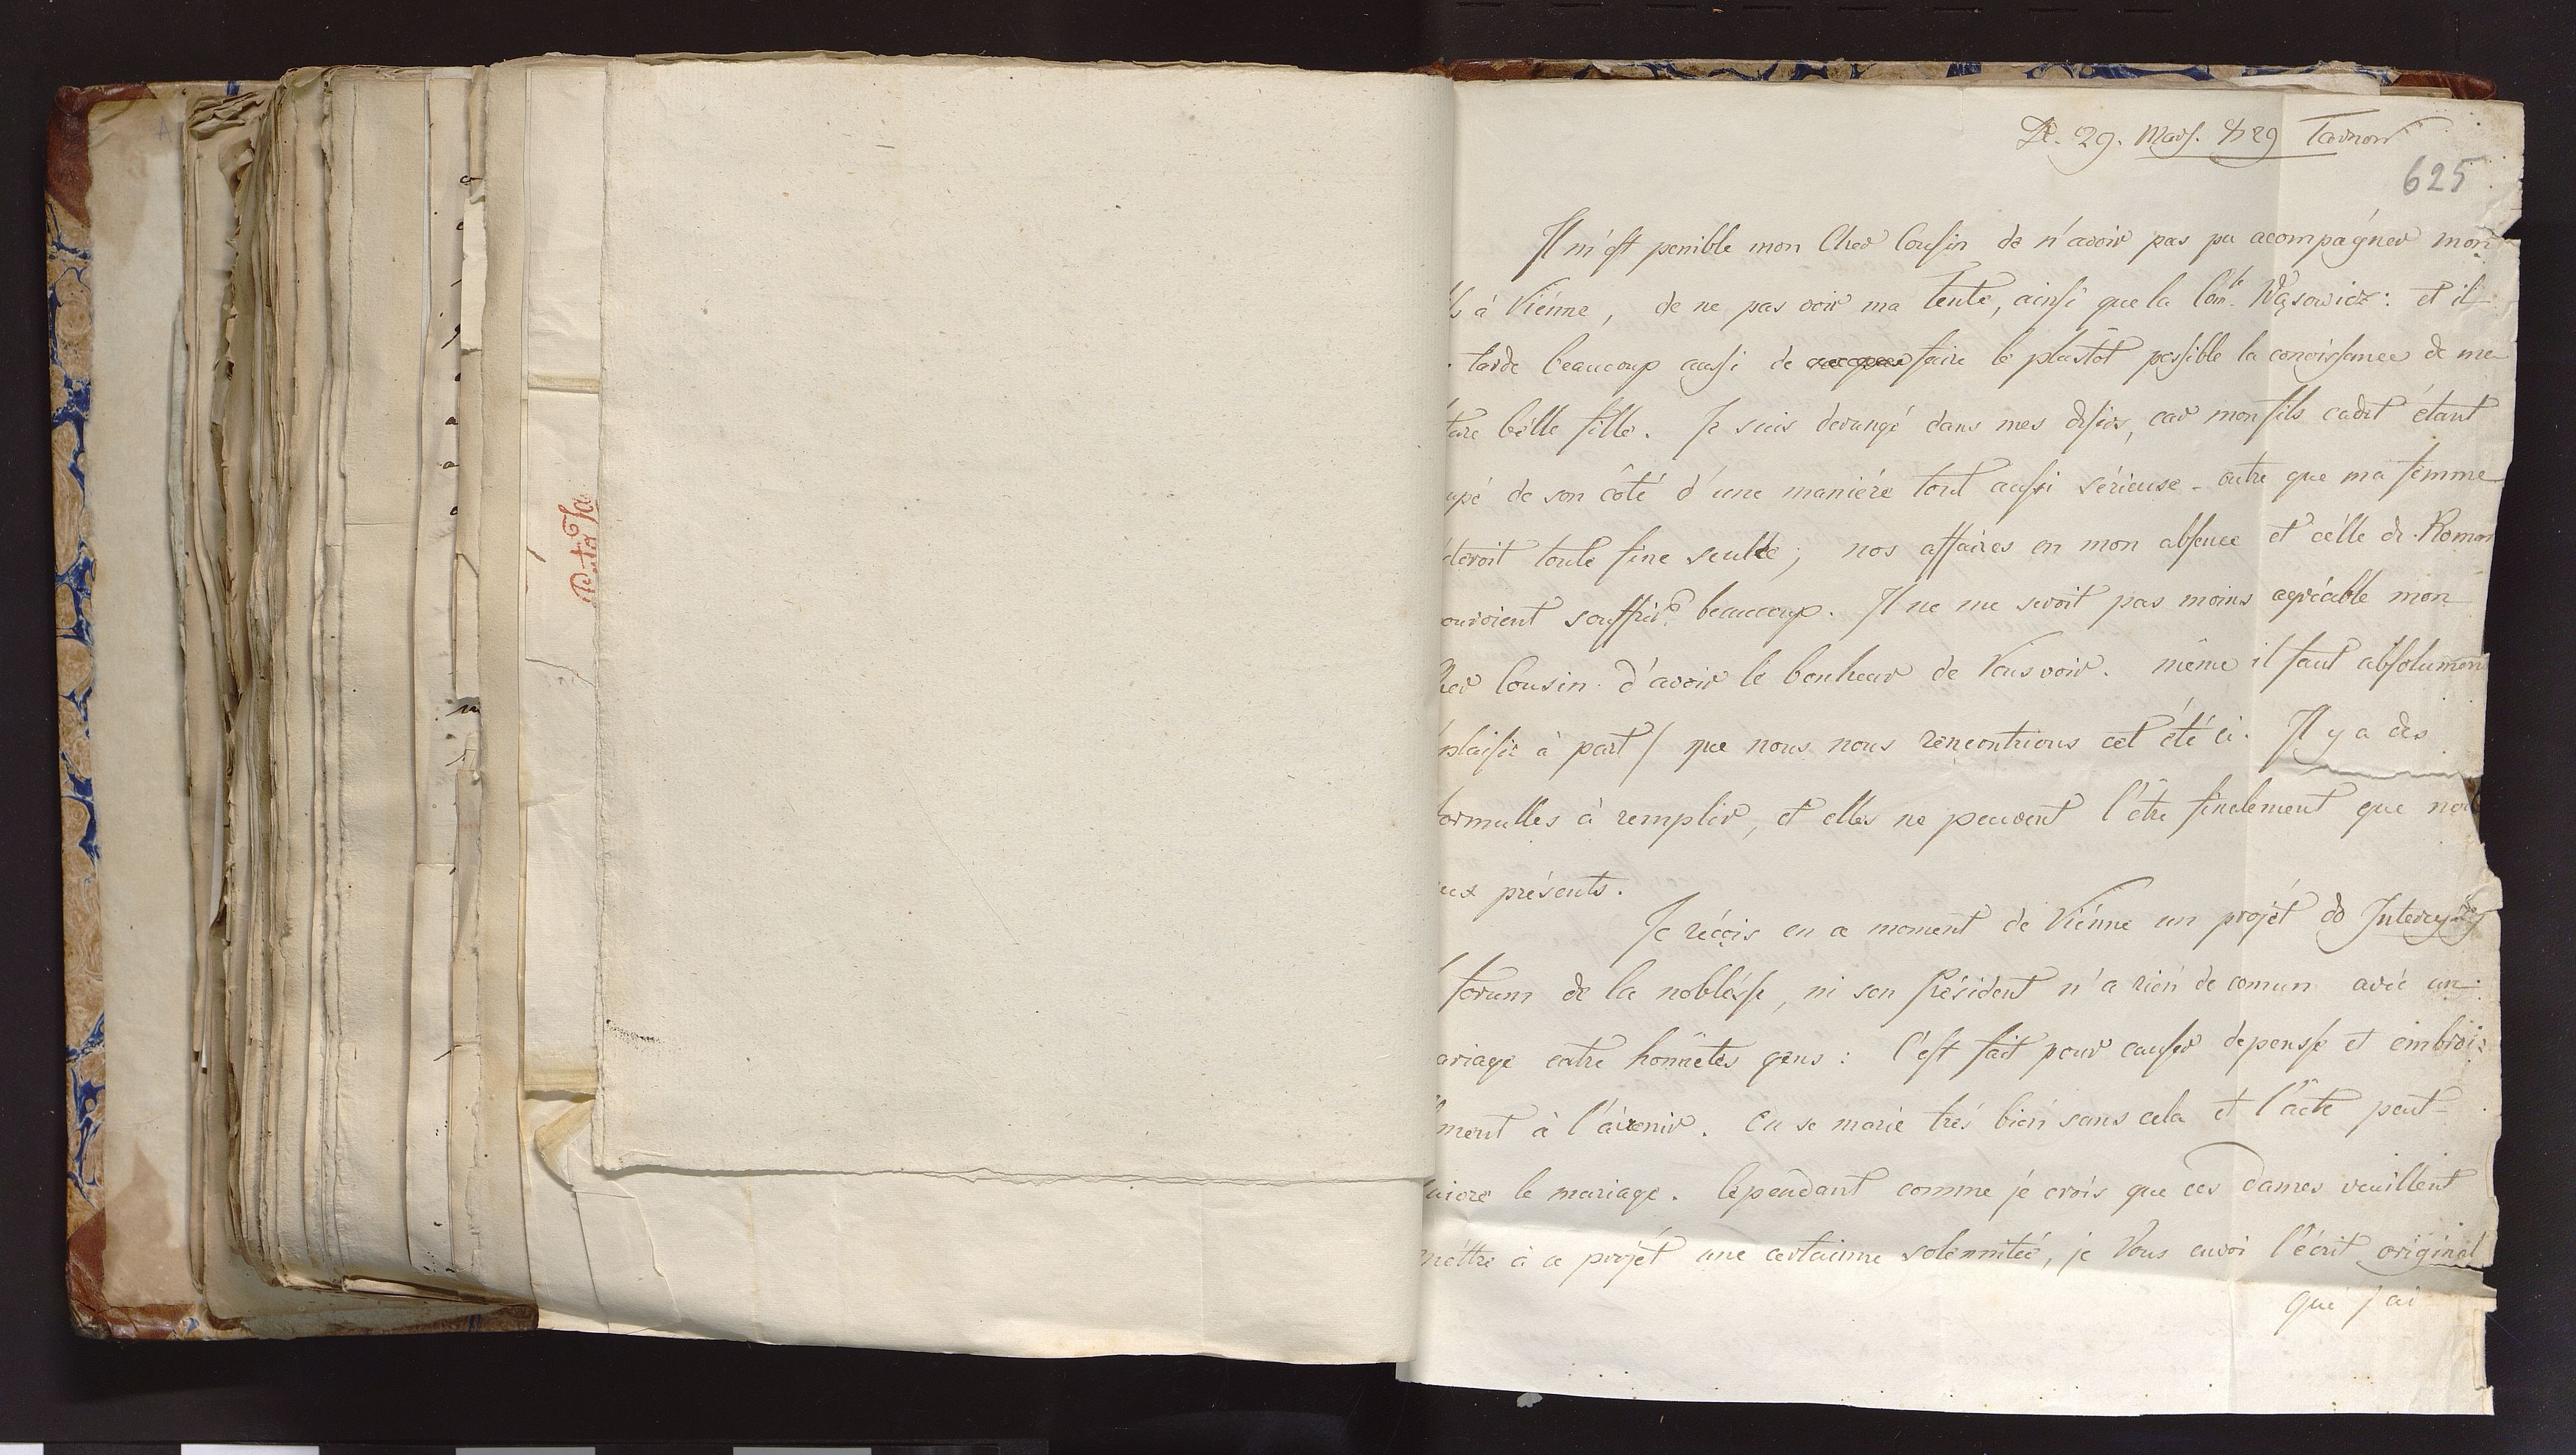 De. 29. Mars. 829 Tarnow
625
Il m'est penible mon Cher Cousin de n'avoir pas pu acompágner mon
ls à Viénne, de ne pas voir ma tente, ainsi que la Com.te Wąsowicz: et il
tarde beaucoup aussi de faire le plustôt possible la conoissance de ma
ture bélle fille. Je suis derangé dans mes desirs, car mon fils cadet étant
upé de son côté d'une maniére tout aussi sérieuse - outre que ma femme
teroit toute fine seule; nos affaires en mon absence et célle de Roman
ouroient souffrir beaucoup. Il ne me seroit pas moins agréable mon
her Cousin d'avoir le bonheur de Vous voir. même il faut absolument
plaisir à part / que nous nous rencontrions cet été ci. Il y a des
formulles à remplir, et elles ne peuvent l'être finalement que nou
eux présents.
Je réçois en ce moment de Viénne un projét do Intercyzy
forum de la noblésse, ni son Président n'a rien de comun avéc un
ariage entre honnêtes gens: C'est fait pour causer depense et embroi:
llment à l'ávenir. On se marie trés bien sans cela et l'acte peut
uivre le mariage. Cependant comme je crois que ces Dames veuillent
méttre à ce projét une certainne solemnitée, je Vous envoi l'écrit original
que j'ai